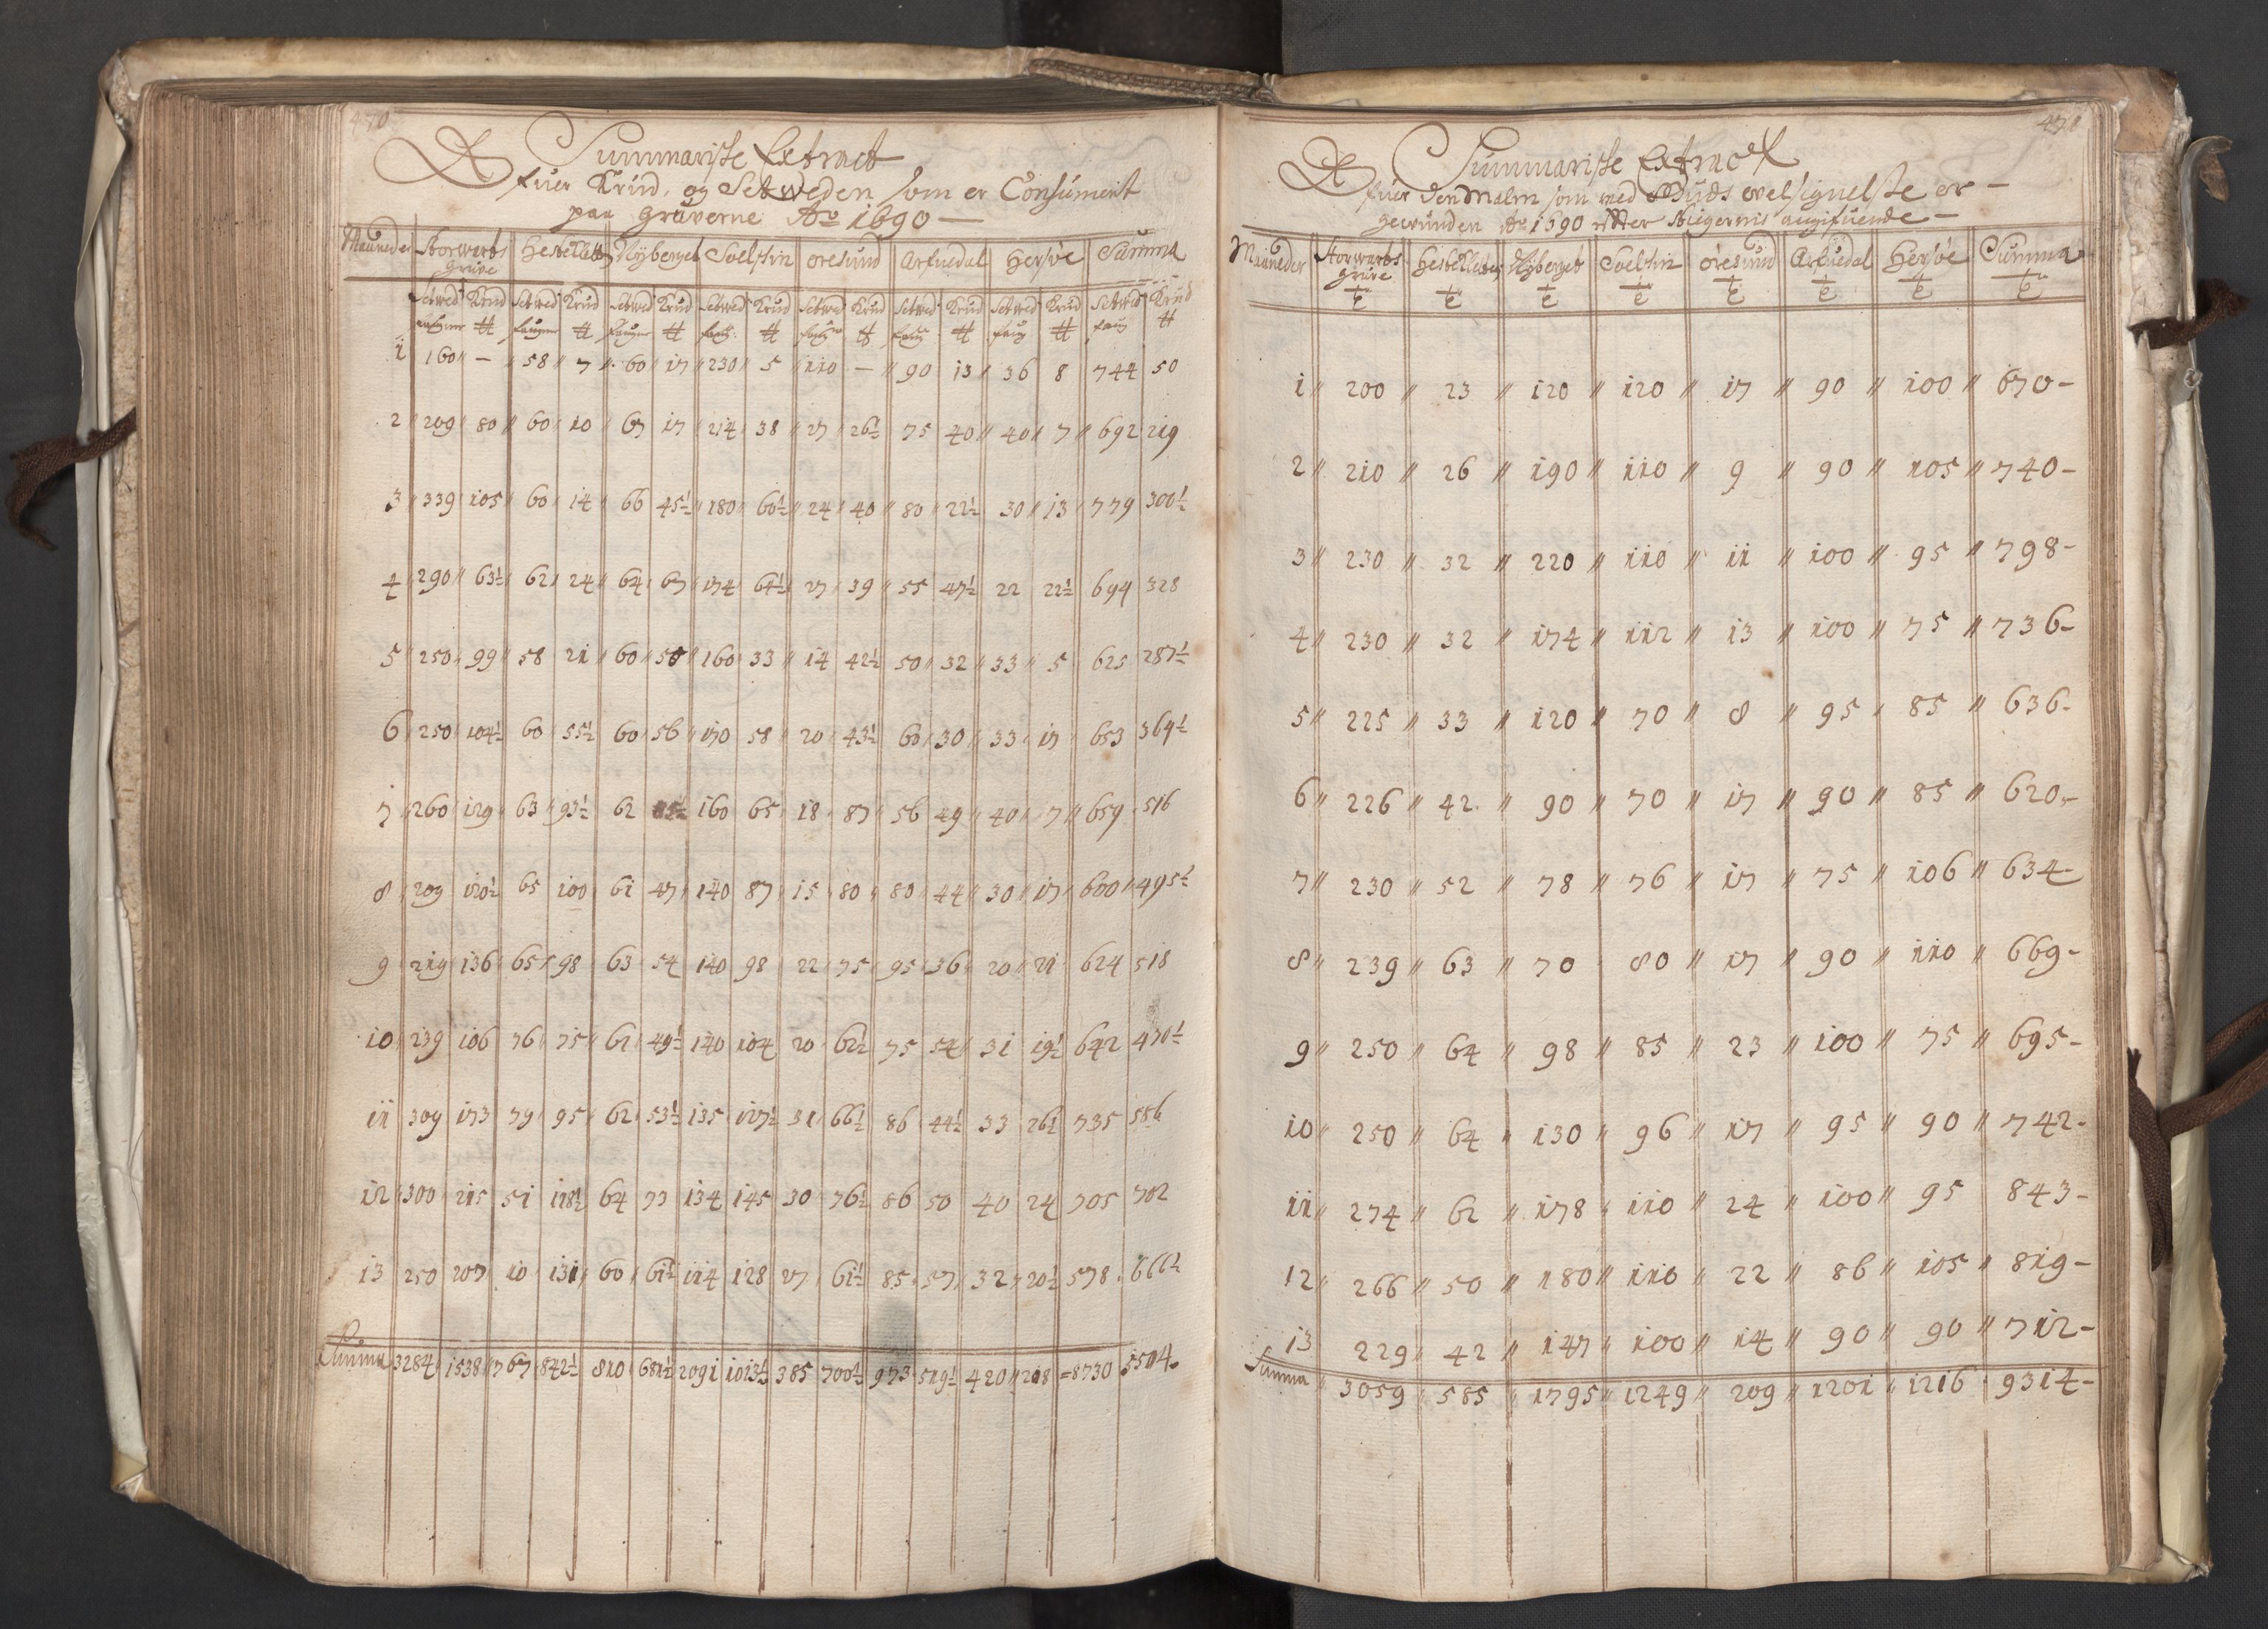 470
Summariske Extract
Ofuer Krud, og Setweden som er Consumerit
paa Gruverne Ao 1690 —
Maaneder Storwarts Gruve Hestekletten Nyberget Soelskin Øresund Arfuedal Hersøe Summa
Setwed Krud Setwed Krud Setwed Krud Setwed Krud Setwed Krud Setwed Krud Setwed Krud Setwed Krud
1 160 — 58 7 60 17 230 5 110 — 90 13 36 8 744 50
2 209 80 60 10 67 17 214 38 27 26½ 75 40 40 7 692 219
3 339 105 60 14 66 45½ 180 60½ 24 40 80 22½ 30 13 779 300½
4 290 63½ 62 24 64 67 174 64½ 27 39 55 47½ 22 22½ 694 328
5 250 99 58 21 60 50 160 33 14 42½ 50 32 33 5 625 287½
6 250 104½ 60 55½ 60 56 170 58 20 43½ 60 30 33 17 653 364½
7 260 129 63 93½ 62 160 65 18 87 56 49 40 7 659 516
8 209 120½ 65 100 61 47 140 87 15 80 80 44 30 17 600 495½
9 219 136 65 98 63 54 140 98 22 75 95 36 20 21 624 518
10 239 106 76 75 61 49½ 140 104 20 62½ 75 54 31 19½ 642 470½
11 309 173 79 95 62 53½ 135 127½ 31 66½ 86 44½ 33 26½ 735 586
12 300 215 51 118½ 64 73 134 145 30 76½ 86 50 40 24 705 702
13 250 207 10 131 60 61½ 114 128 27 61½ 85 57 32 20½ 578 666½
Summa 3284 1538 767 842½ 810 681½ 2091 1013½ 385 700½ 973 519½ 420 208 8730 5504
471
Summariske Extract
Ofuer den Malm som med Guds velsignelse er —
gewunden Ao 1690 efter Stigernis angifuende —
Maaneder Storwarts Gruve Hestekletten Nyberget Soelskin Øresund Arfuedal Hersøe Summa
1 200 23 120 120 17 90 100 670 —
2 210 26 190 110 9 90 105 740 —
3 230 32 220 110 11 100 95 798 —
4 230 32 174 112 13 100 75 736 —
5 225 33 120 70 8 95 85 636 —
6 226 42 90 70 17 90 85 620 —
7 230 52 78 76 17 75 106 634 —
8 239 63 70 80 17 90 110 669 —
9 250 64 98 85 23 100 75 695 —
10 250 64 130 96 17 95 90 742 —
11 274 62 178 110 24 100 95 843 —
12 266 50 180 110 22 86 105 819 —
13 229 42 147 100 14 90 90 712 —
Summa 3059 585 1795 1249 209 1201 1216 9314 —